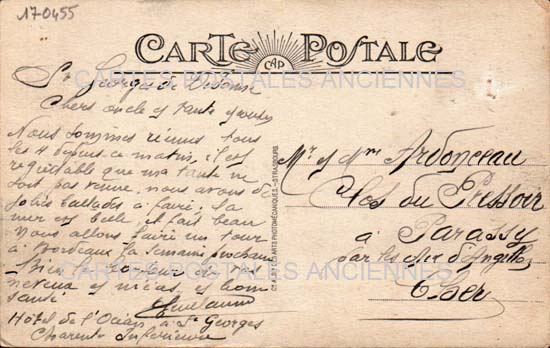 170455
CARTE POSTALE
CAP
CARTES POSTALES ANCIENNES
St Georges de Didonne
Chers oncle et tante
Nous sommes réunis tous
les 4 depuis ce matin, il est
regrettable que ma tante ne
soit pas venue, nous avons de
jolies ballades à faire. La
mer est belle, il fait beau
Nous allons faire un tour
à Bordeaux la semaine prochaine
Bien
neveux et nièces, et bonne
santé
Hôtel de l'Océan à St Georges
Charente Inférieure
Mr et Mme Ardonceau
Clos du Pressoir
à Parassy
par les Aix d'Angillon
Cher
CARTES POSTALES ANCIENNES